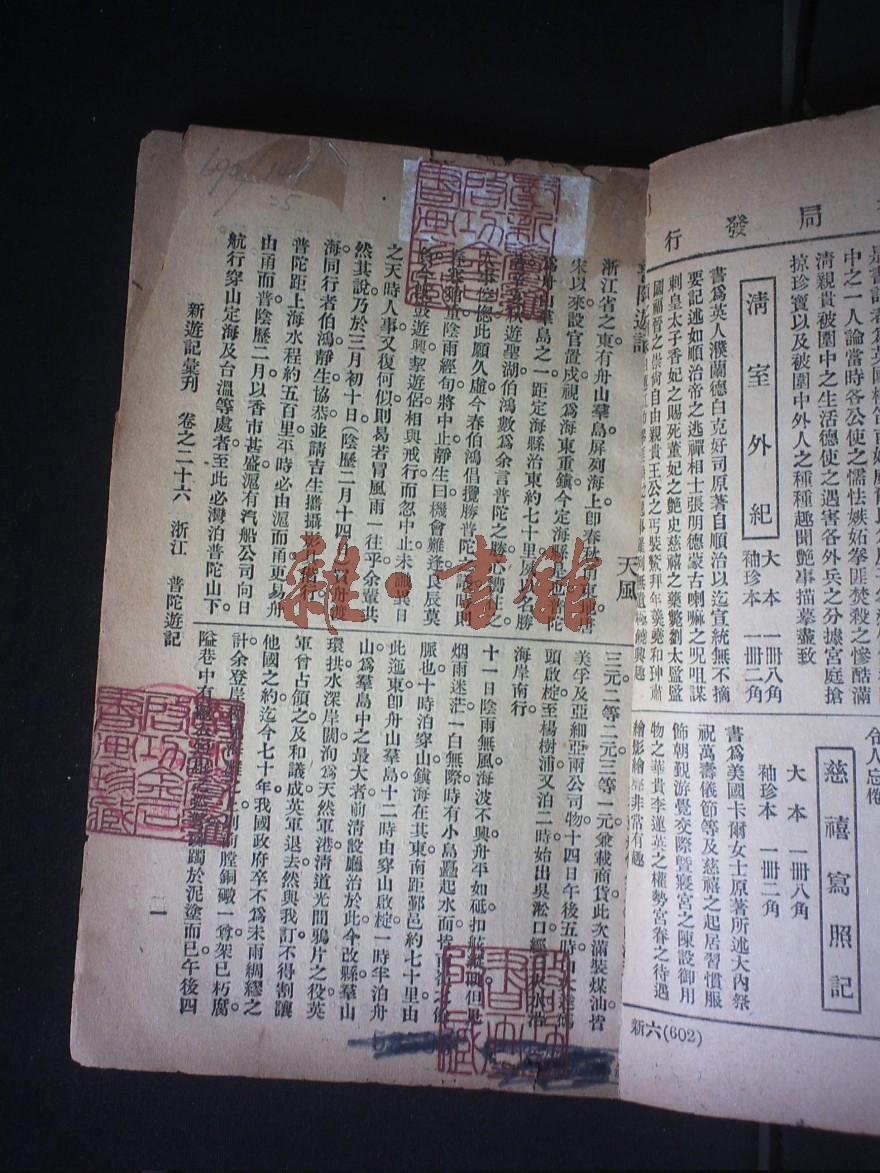 局發行
中之一人論當時各公使之懦怯嫉妬拳匪焚殺之慘酷滿
清親貴被圍中之生活德使之遇害各外兵之分據宮庭搶
掠珍寶以及被圍中外人之種種趣聞艷事描摹盡致
清室外紀
大本 一冊八角
袖珍本 一冊二角
書爲英人濮蘭德白克好司原著自順治以迄宣統無不摘
要記述如順治帝之逃禪相士張明德蒙古喇嘛之咒詛謀
刺皇太子香妃之賜死董妃之艶史慈禧之藥斃劉太監監
國福晉之崇尚自由親貴王公之丐裝
令人忘倦
慈禧寫照記
大本 一冊八角
袖珍本 一冊二角
書爲美國卡爾女士原著所述大內祭
祝萬壽儀節等及慈禧之起居習慣服
飾朝覲游覺交際曁寢宮之陳設御用
物之華貴李蓮英之權勢宮眷之待遇
繪影繪聲非常有趣
新六(602)
天風
浙江省之東有舟山羣島屛列海上卽春秋甬東地唐
宋以來設官置戍視爲海東重鎭今定海縣
爲舟山羣島之一距定海縣治東約七十里
遊聖湖伯鴻數爲余言普陀之勝心嚮往之
此願久虛今春伯鴻倡攬勝普陀之議時則
春寒猶重陰雨經旬將中止靜生曰機會難逢良辰莫
遊興挈遊侶相與戒行而忽中止未識異日
之天時人事又復何似則曷若冒風雨一往乎余韙其
然其說乃於三月初十日(陰歷二月十四日)
海同行者伯鴻靜生協恭並請吉生攜攝影
普陀距上海水程約五百里平時必由滬而甬更易舟
由甬而普陰歷二月以香市甚盛滬有汽船公司向日
航行穿山定海及台溫等處者至此必灣泊普陀山下
三元二等二元三等一元兼載商貨此次滿裝煤油皆
美孚及亞細亞兩公司物十四日午後五時
頭啟椗至楊樹浦又泊二時始出吳淞口
海岸南行
十一日陰雨無風海波不興舟平如砥扣舷
烟雨迷茫一白無際時有小島矗起水面
脈也十時泊穿山鎭海在其東南距鄞邑約七十里由
此迤東卽舟山羣島十二時由穿山啟椗一時半泊舟
山爲羣島中之最大者前淸設廳治於此今改縣羣山
環拱水深岸闊洵爲天然軍港淸道光間鴉片之役英
軍曾占領之及和議成英軍退去然與我訂不得割讓
他國之約迄今七十年我國政府卒不爲未雨綢繆之
計余登岸 則前膛銅礮一尊架已朽腐
隘巷中有 躅於泥塗而已午後四
新遊記彙刊 卷之二十六 浙江 普陀遊記
二
雜·書館